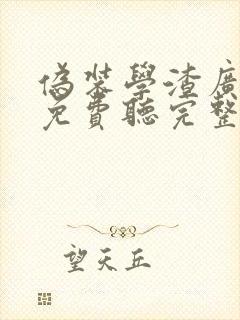 偽裝學渣廣
免費聽完整
望天丘